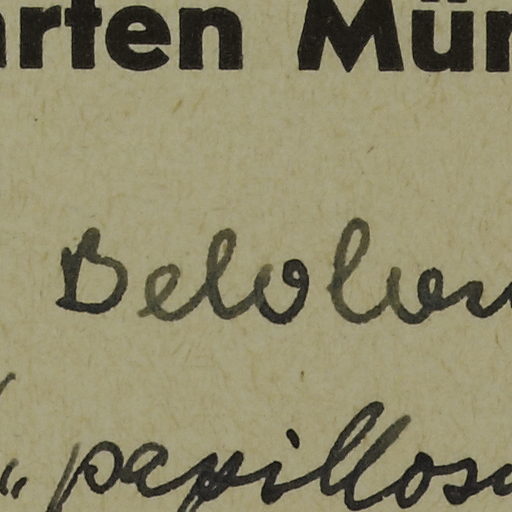 arten Mün
Belolon
„ papillosa